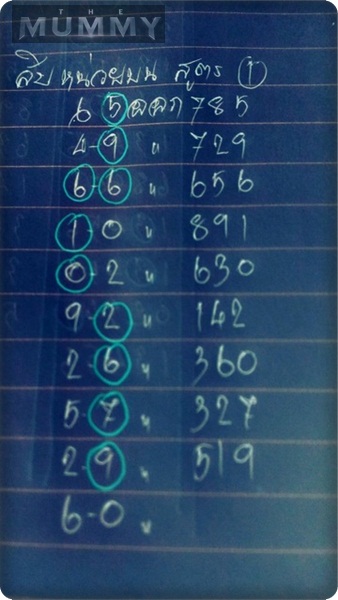 THE
MUMMY
สิบ หน่วยบน สูตร ①
65 ออก 785
4-9 " 729
6-6 " 656
1-0 " 891
0-2 " 630
9-2 " 142
2-6 " 360
5-7 " 327
2-9 " 519
6-0 "